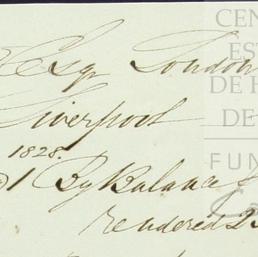 Esqr London
Liverpool
1828.
1 By Balance
rendered 23
CEN
ES
DE
DE
FUN